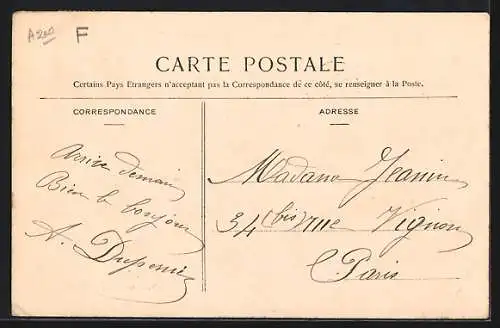 A200 F
CARTE POSTALE
Certains Pays Etrangers n'acceptant pas la Correspondance de ce côté, se renseigner à la Poste.
CORRESPONDANCE
ADRESSE
Arrive demain
Bien le bonjour
A.
Madame Jeanin
34 (bis) rue Vignon
Paris